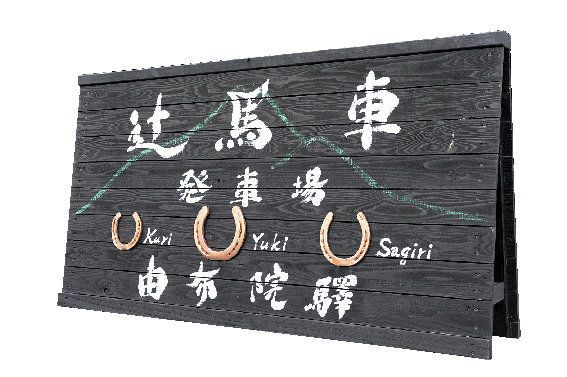 辻馬車
発車場
Kuri Yuki Sagiri
由布院驛